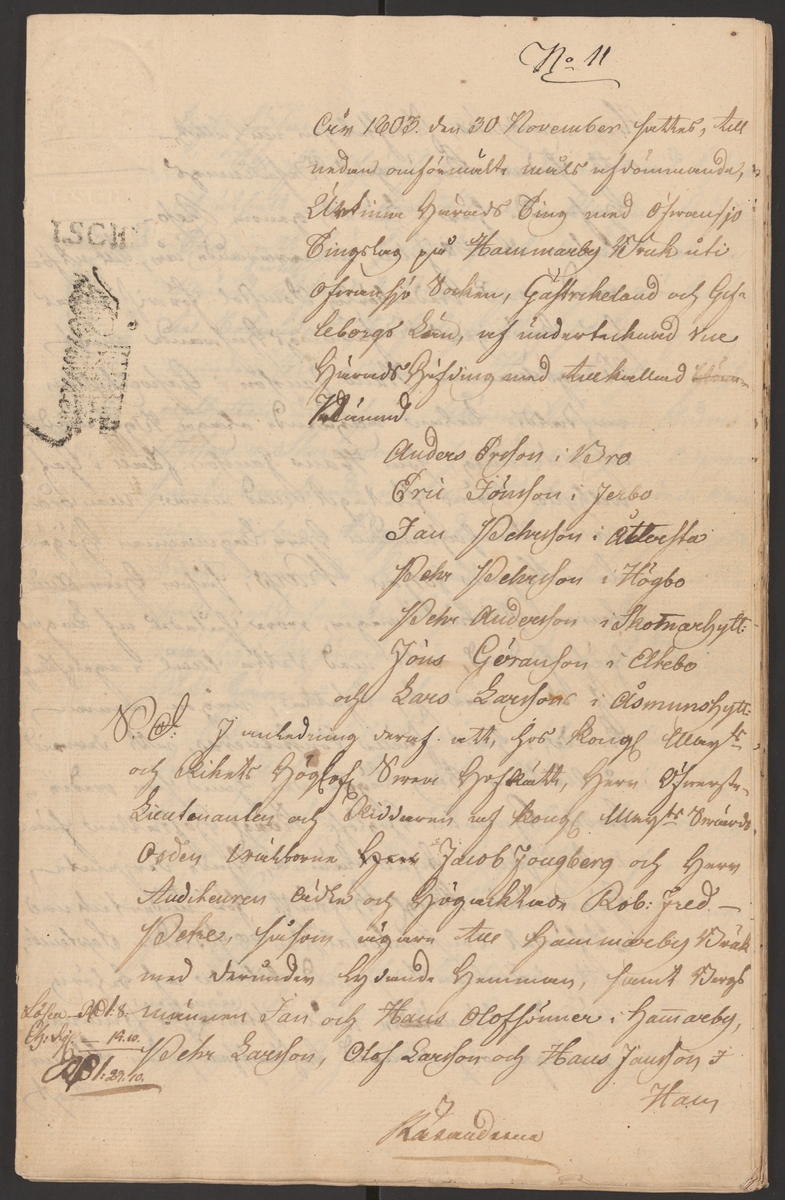 No 11
Åhr 1803. den 30 November hölts, till
nedan omförmälte måls afdömmande,
Urtima Härads Ting med Ofvansjö
Tingslag på Hammarby Bruk uti
Ofvansjö Socken, Gästrikeland och Gef-
leborgs Län, af undertecknad vice
Härads Höfding med tillkallad
Nämnd
LSCH
Anders Ersson i Bro
Eric Jönsson i Jerbo
Jan Pehrsson i Åttersta
Pehr Pehrsson i Högbo
Pehr Andersson i Skomarhytt:
Jöns Göransson i Eltebo
och Lars Larsson i Åsmunshytt:
S: D: I anledning deraf att, hos Kongl Mayts
och Rikets Höglofl Svea HofRätt, Herr Öfverste-
Lieutenanten och Riddaren af Kongl Mayts Svärds-
Orden Välborne Herr Jacob Ljungberg och Herr
Auditeuren Ädle och Högacktade Rob: Fred
Petre, såsom ägare till Hammarby Bruk
med derunder lydande Hemman, samt Bergs
männen Jan och Hans Olofssönner i Hammarby,
Pehr Larsson, Olof Larsson och Hans Jansson i
Ham
Lösen Rd 1: 8.
15.10.
Rd 1: 23.10.
Käranderne